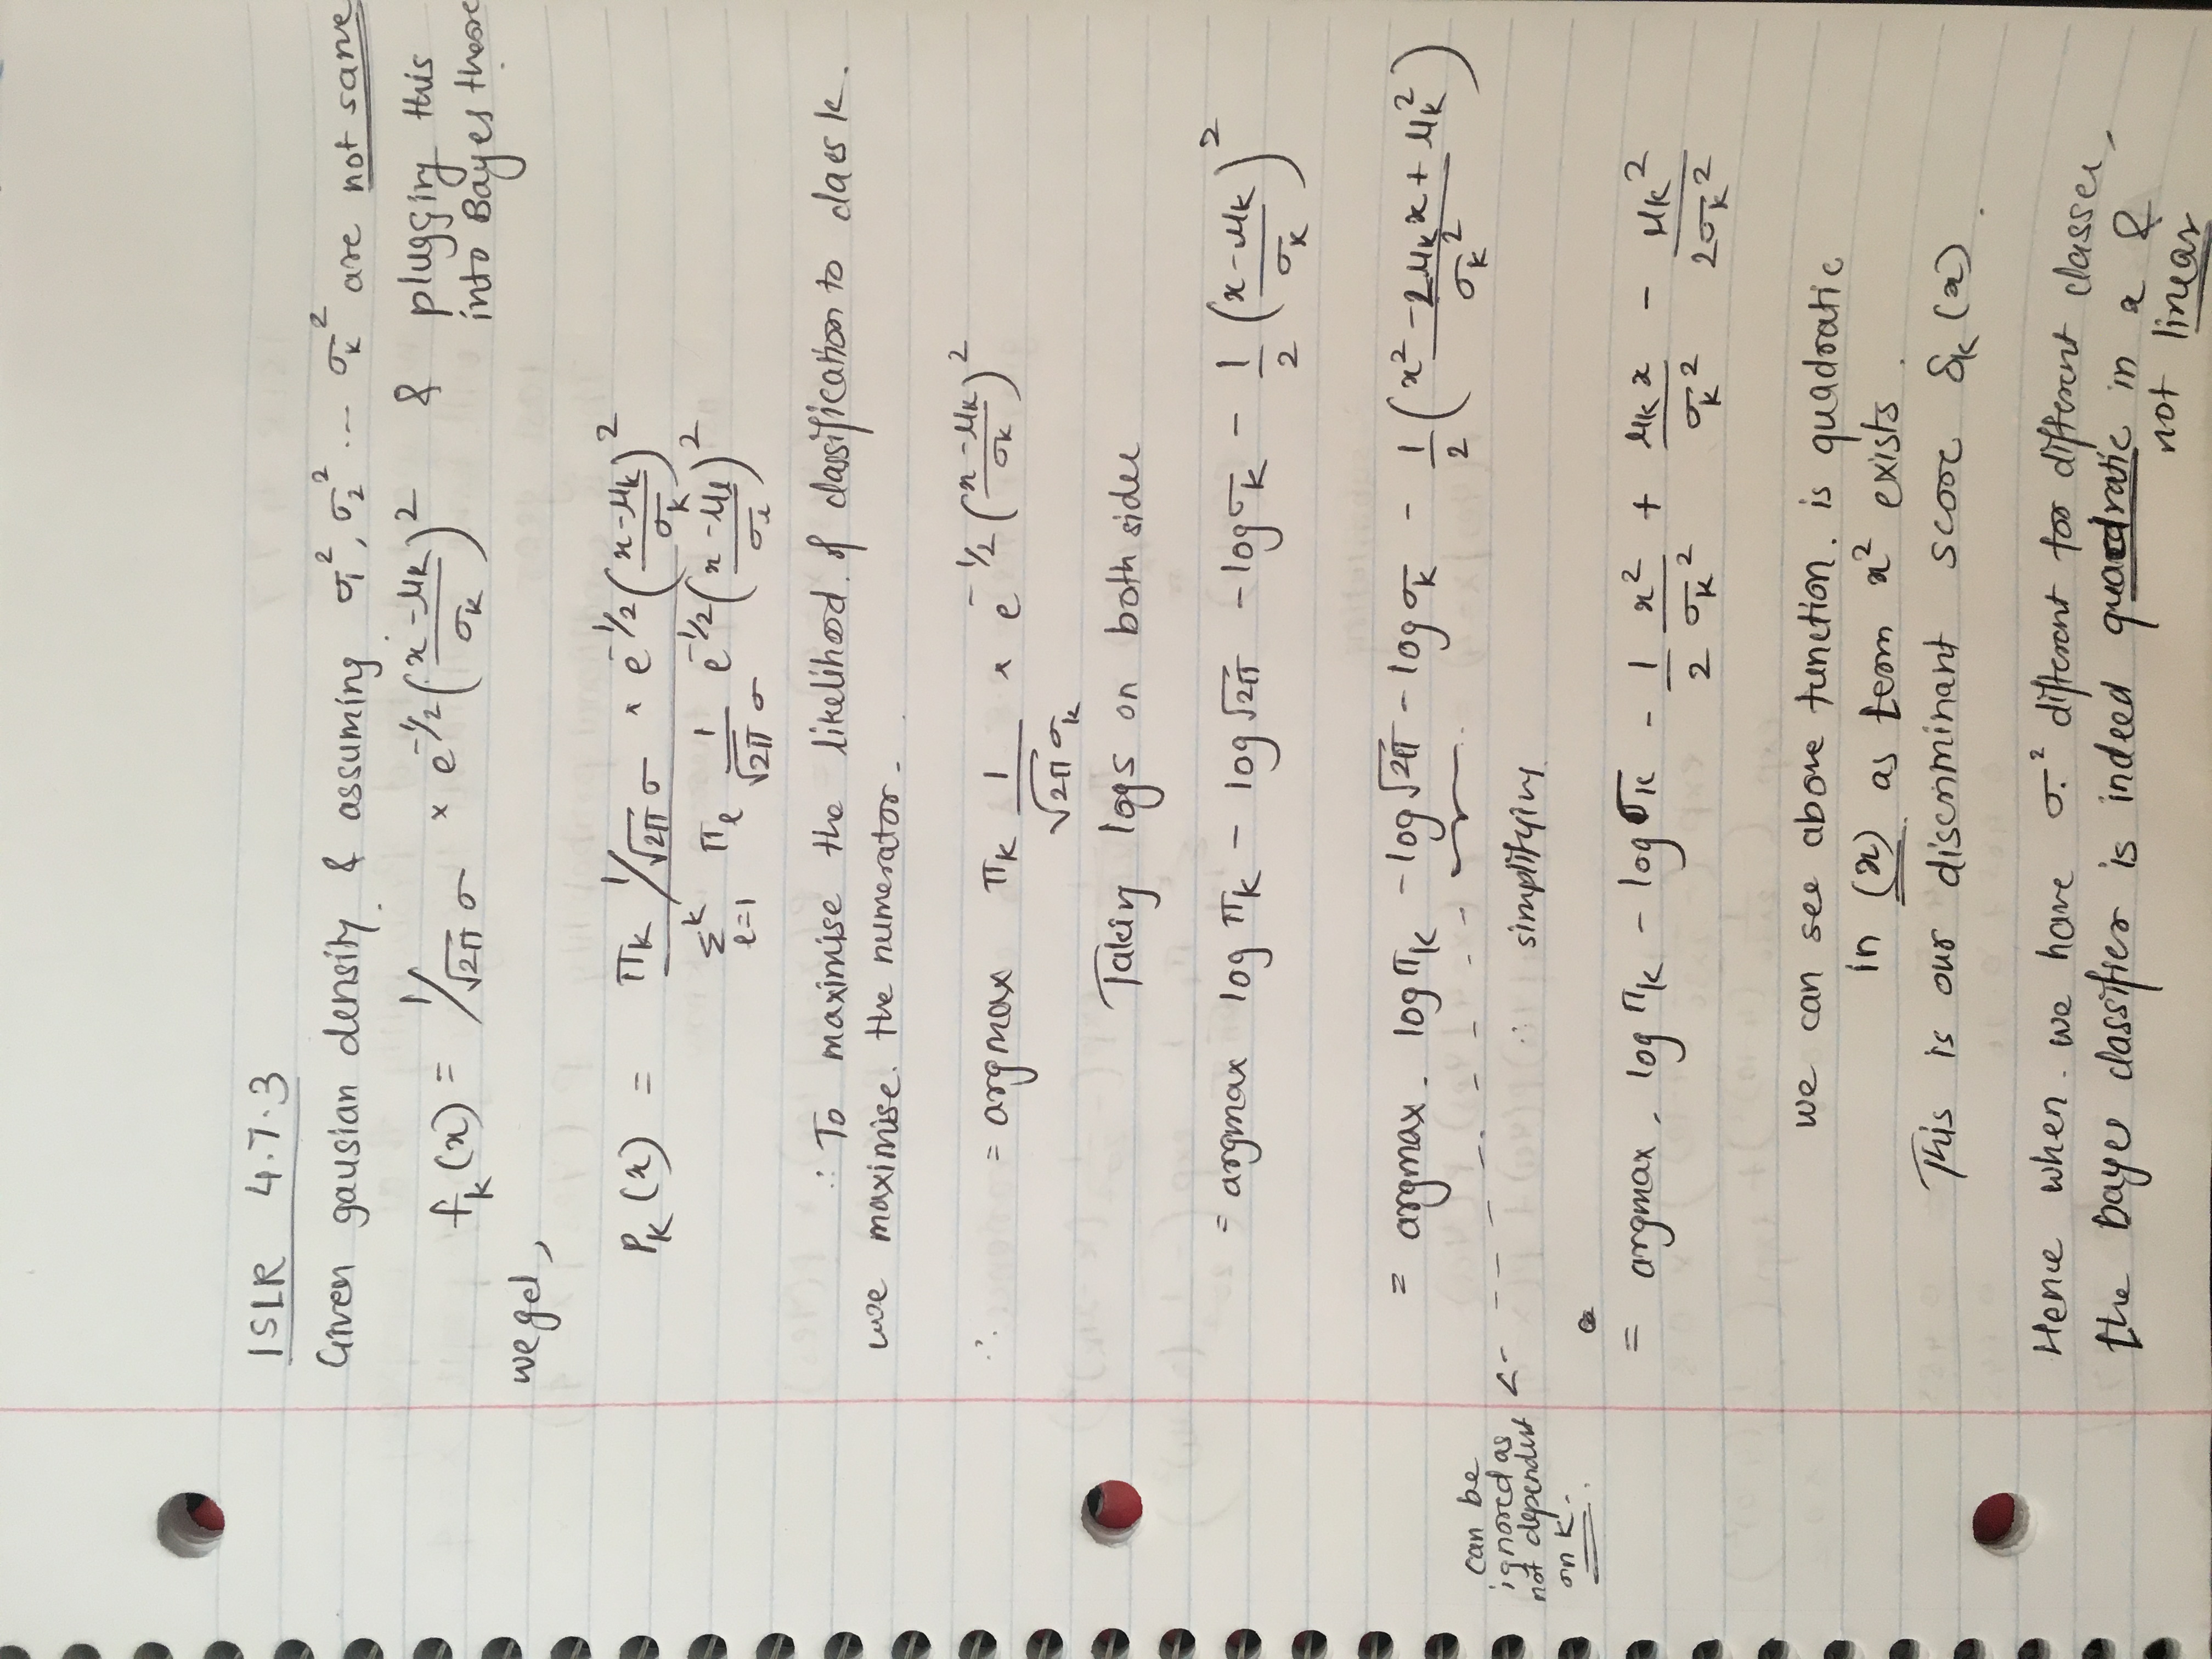 ISLR 4.7.3
Given gausian density & assuming σ₁², σ₂² ... σₖ² are not same
fₖ(x) = 1/√2π σ × e^-1/2 ((x-μₖ)/σₖ)² & plugging this
into Bayes theore
we get,
Pₖ(x) = πₖ 1/√2π σ × e^-1/2 ((x-μₖ)/σₖ)²
Σ^k l=1 πₗ 1/√2π σ e^-1/2 ((x-μₗ)/σₗ)²
∴ To maximise the likelihood of classification to class k.
we maximise the numerator.
∴ = argmax πₖ 1/√2π σₖ × e^-1/2 ((x-μₖ)/σₖ)²
Taking logs on both sides
= argmax log πₖ - log √2π - log σₖ - 1/2 ((x-μₖ)/σₖ)²
= argmax. log πₖ - log √2π - log σₖ - 1/2 ((x² - 2μₖx + μₖ²)/σₖ²)
can be
ignored as
not dependent
on k.
∴ simplifying
= argmax. log πₖ - log σₖ - 1/2 x²/σₖ² + μₖx/σₖ² - μₖ²/2σₖ²
we can see above function. is quadratic
in (x) as term x² exists.
This is our discriminant score δₖ(x).
Hence when we have σ² different for different classes,
the bayes classifier is indeed quadratic in x &
not linear